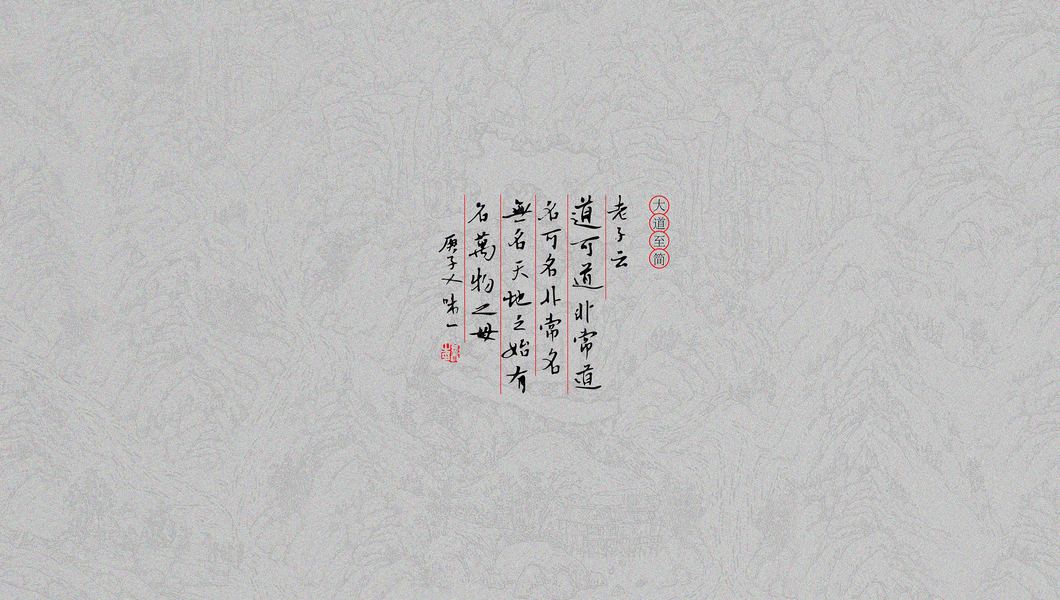 大道至简
老子云
道可道非常道
名可名非常名
無名天地之始有
名萬物之母
庚子人味一